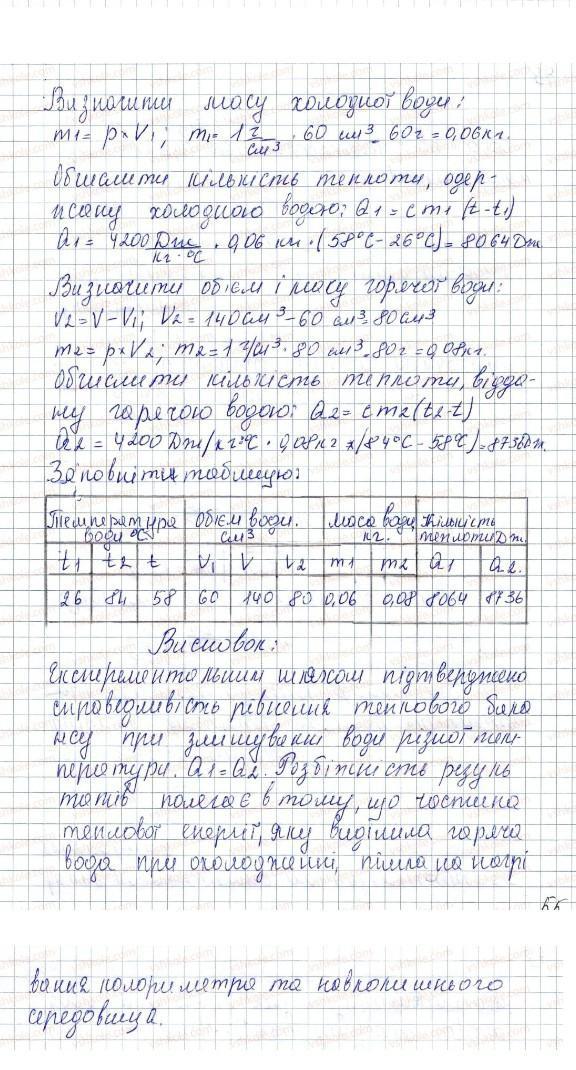 Визначити масу холодної води:
m1 = p × V1; m1 = 1 г/см³ · 60 см³ = 60г = 0,06кг.
Обчислити кількість теплоти, одер-
жану холодною водою: Q1 = cm1(t-t1)
Q1 = 4200 Дж/кг·°C · 0,06 кг · (58°C - 26°C) = 8064 Дж
Визначити об'єм і масу горячої води:
V2 = V - V1; V2 = 140см³ - 60 см³ = 80см3
m2 = p × V2; m2 = 1 г/см³ · 80 см³ = 80г = 0,08кг.
Обчислити кількість теплоти, відда-
ну гарячою водою: Q2 = cm2(t2-t)
Q2 = 4200 Дж/кг·°C · 0,08кг × (84°C - 58°C) = 8736Дж.
Заповніти таблицю:
Температура води °C Об'єм води. см3 Маса води кг. Кількість теплоти Дж.
t1 t2 t V1 V V2 m1 m2 Q1 Q2.
26 84 58 60 140 80 0,06 0,08 8064 8736
Висновок:
Експерементальним шляхом підтверджено
справедливість рівнення теплового бала
нсу при змішуванні води різної тем-
ператури. Q1 = Q2. Розбіжність резуль
татів полягає в тому, що частина
теплової енергії, яку виділила гаряча
вода при охолодженні, пішла на нагрі
вання колориметра та навколишнього
середовища.